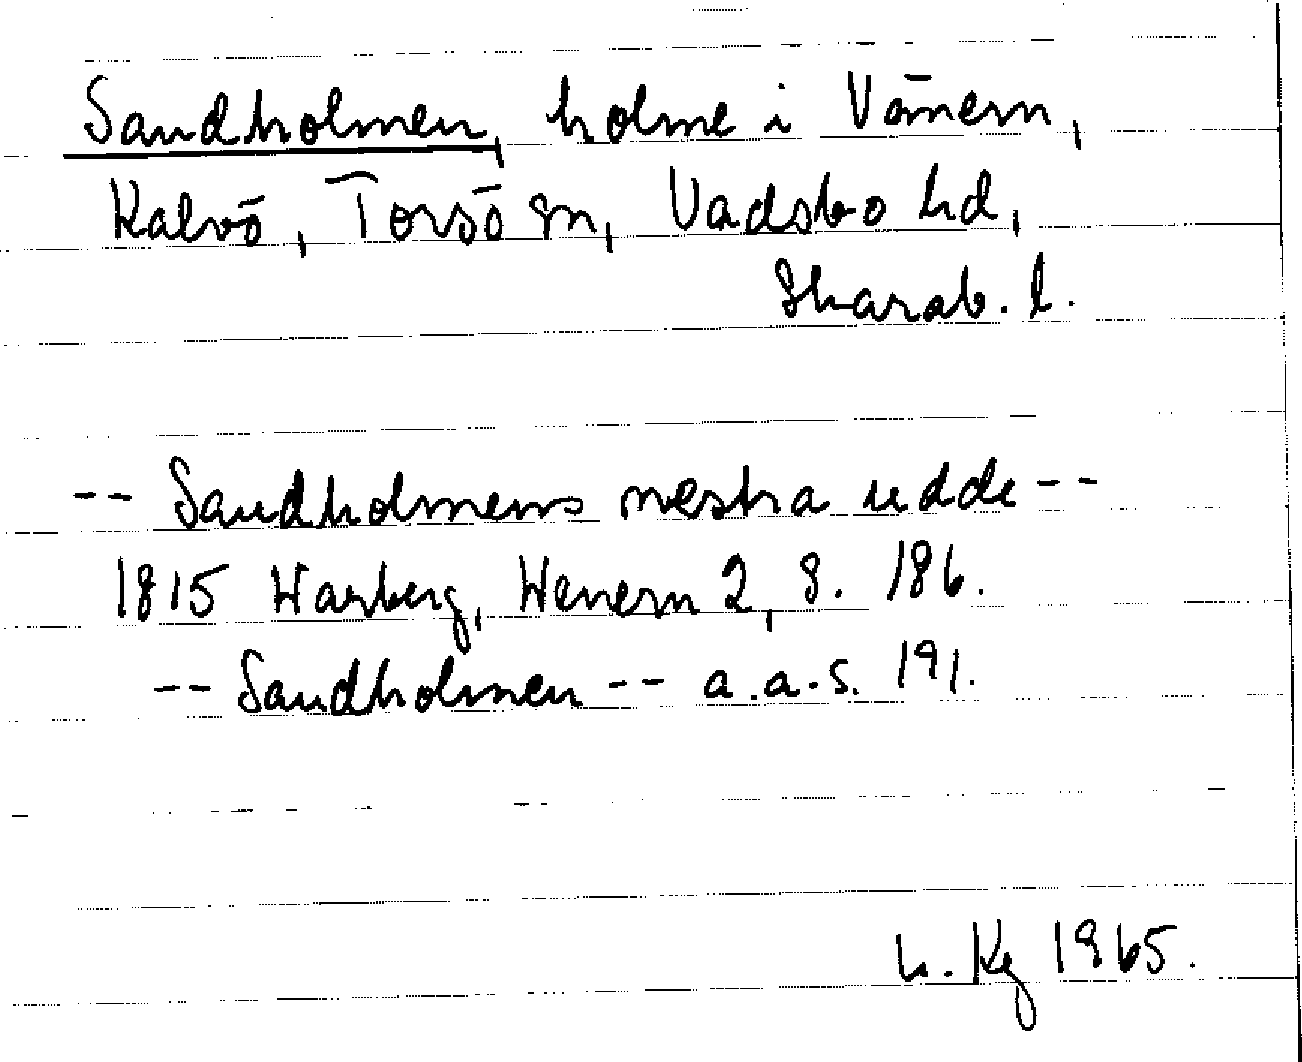 Sandholmen, holme i Vänern,
Kalvö, Torsö sn, Vadsbo hd,
Skarab. l.
-- Sandholmens westra udde --
1815 Warberg, Wenern 2, s. 186.
-- Sandholmen -- a.a.s. 191.
h. Kg 1965.